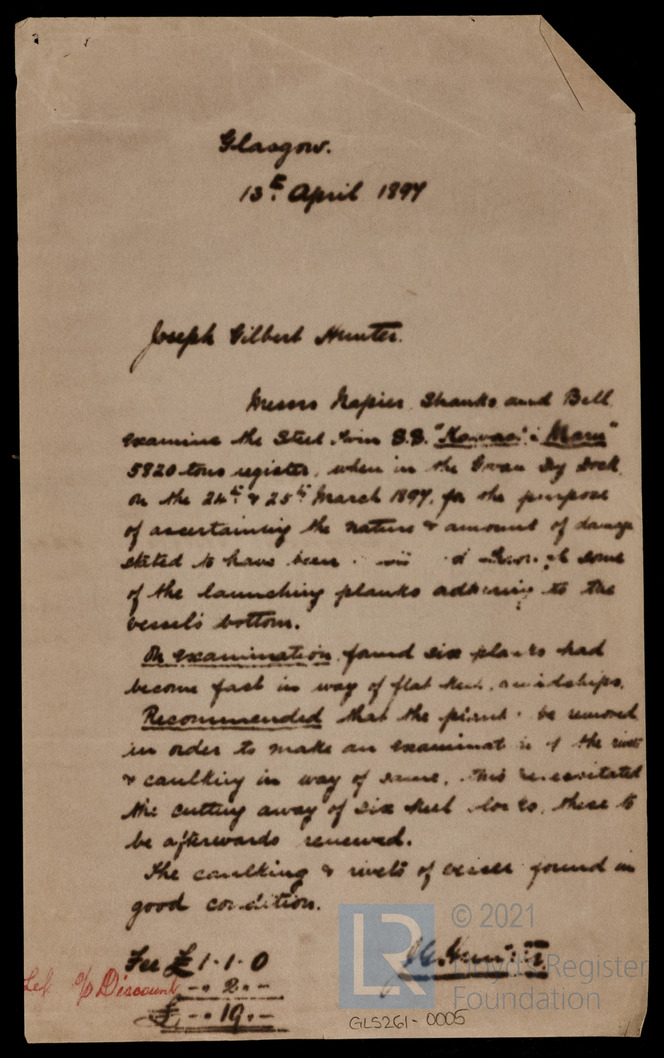 Glasgow.
13th April 1897
Joseph Gilbert Hunter.
Messrs Napier, Shanks and Bell
examine the Steel Twin S.S. "Kawachi Maru"
5820 tons register, when in the Govan Dry Dock
on the 24th & 25th March 1897, for the purpose
of ascertaining the nature & amount of damage
stated to have been through some
of the launching planks adhering to the
vessel's bottom.
On examination, found six planks had
become fast in way of flat keel, amidships.
Recommended that the planks be removed
in order to make an examination of the rivets
& caulking in way of same, this necessitated
the cutting away of six keel blocks, these to
be afterwards renewed.
The caulking & rivets of vessel found in
good condition.
Fee £1-1-0
Less % Discount - 2 -
£ - 19 -
J G Hunter
LR
© 2021
Lloyd's Register
Foundation
GLS261-0005